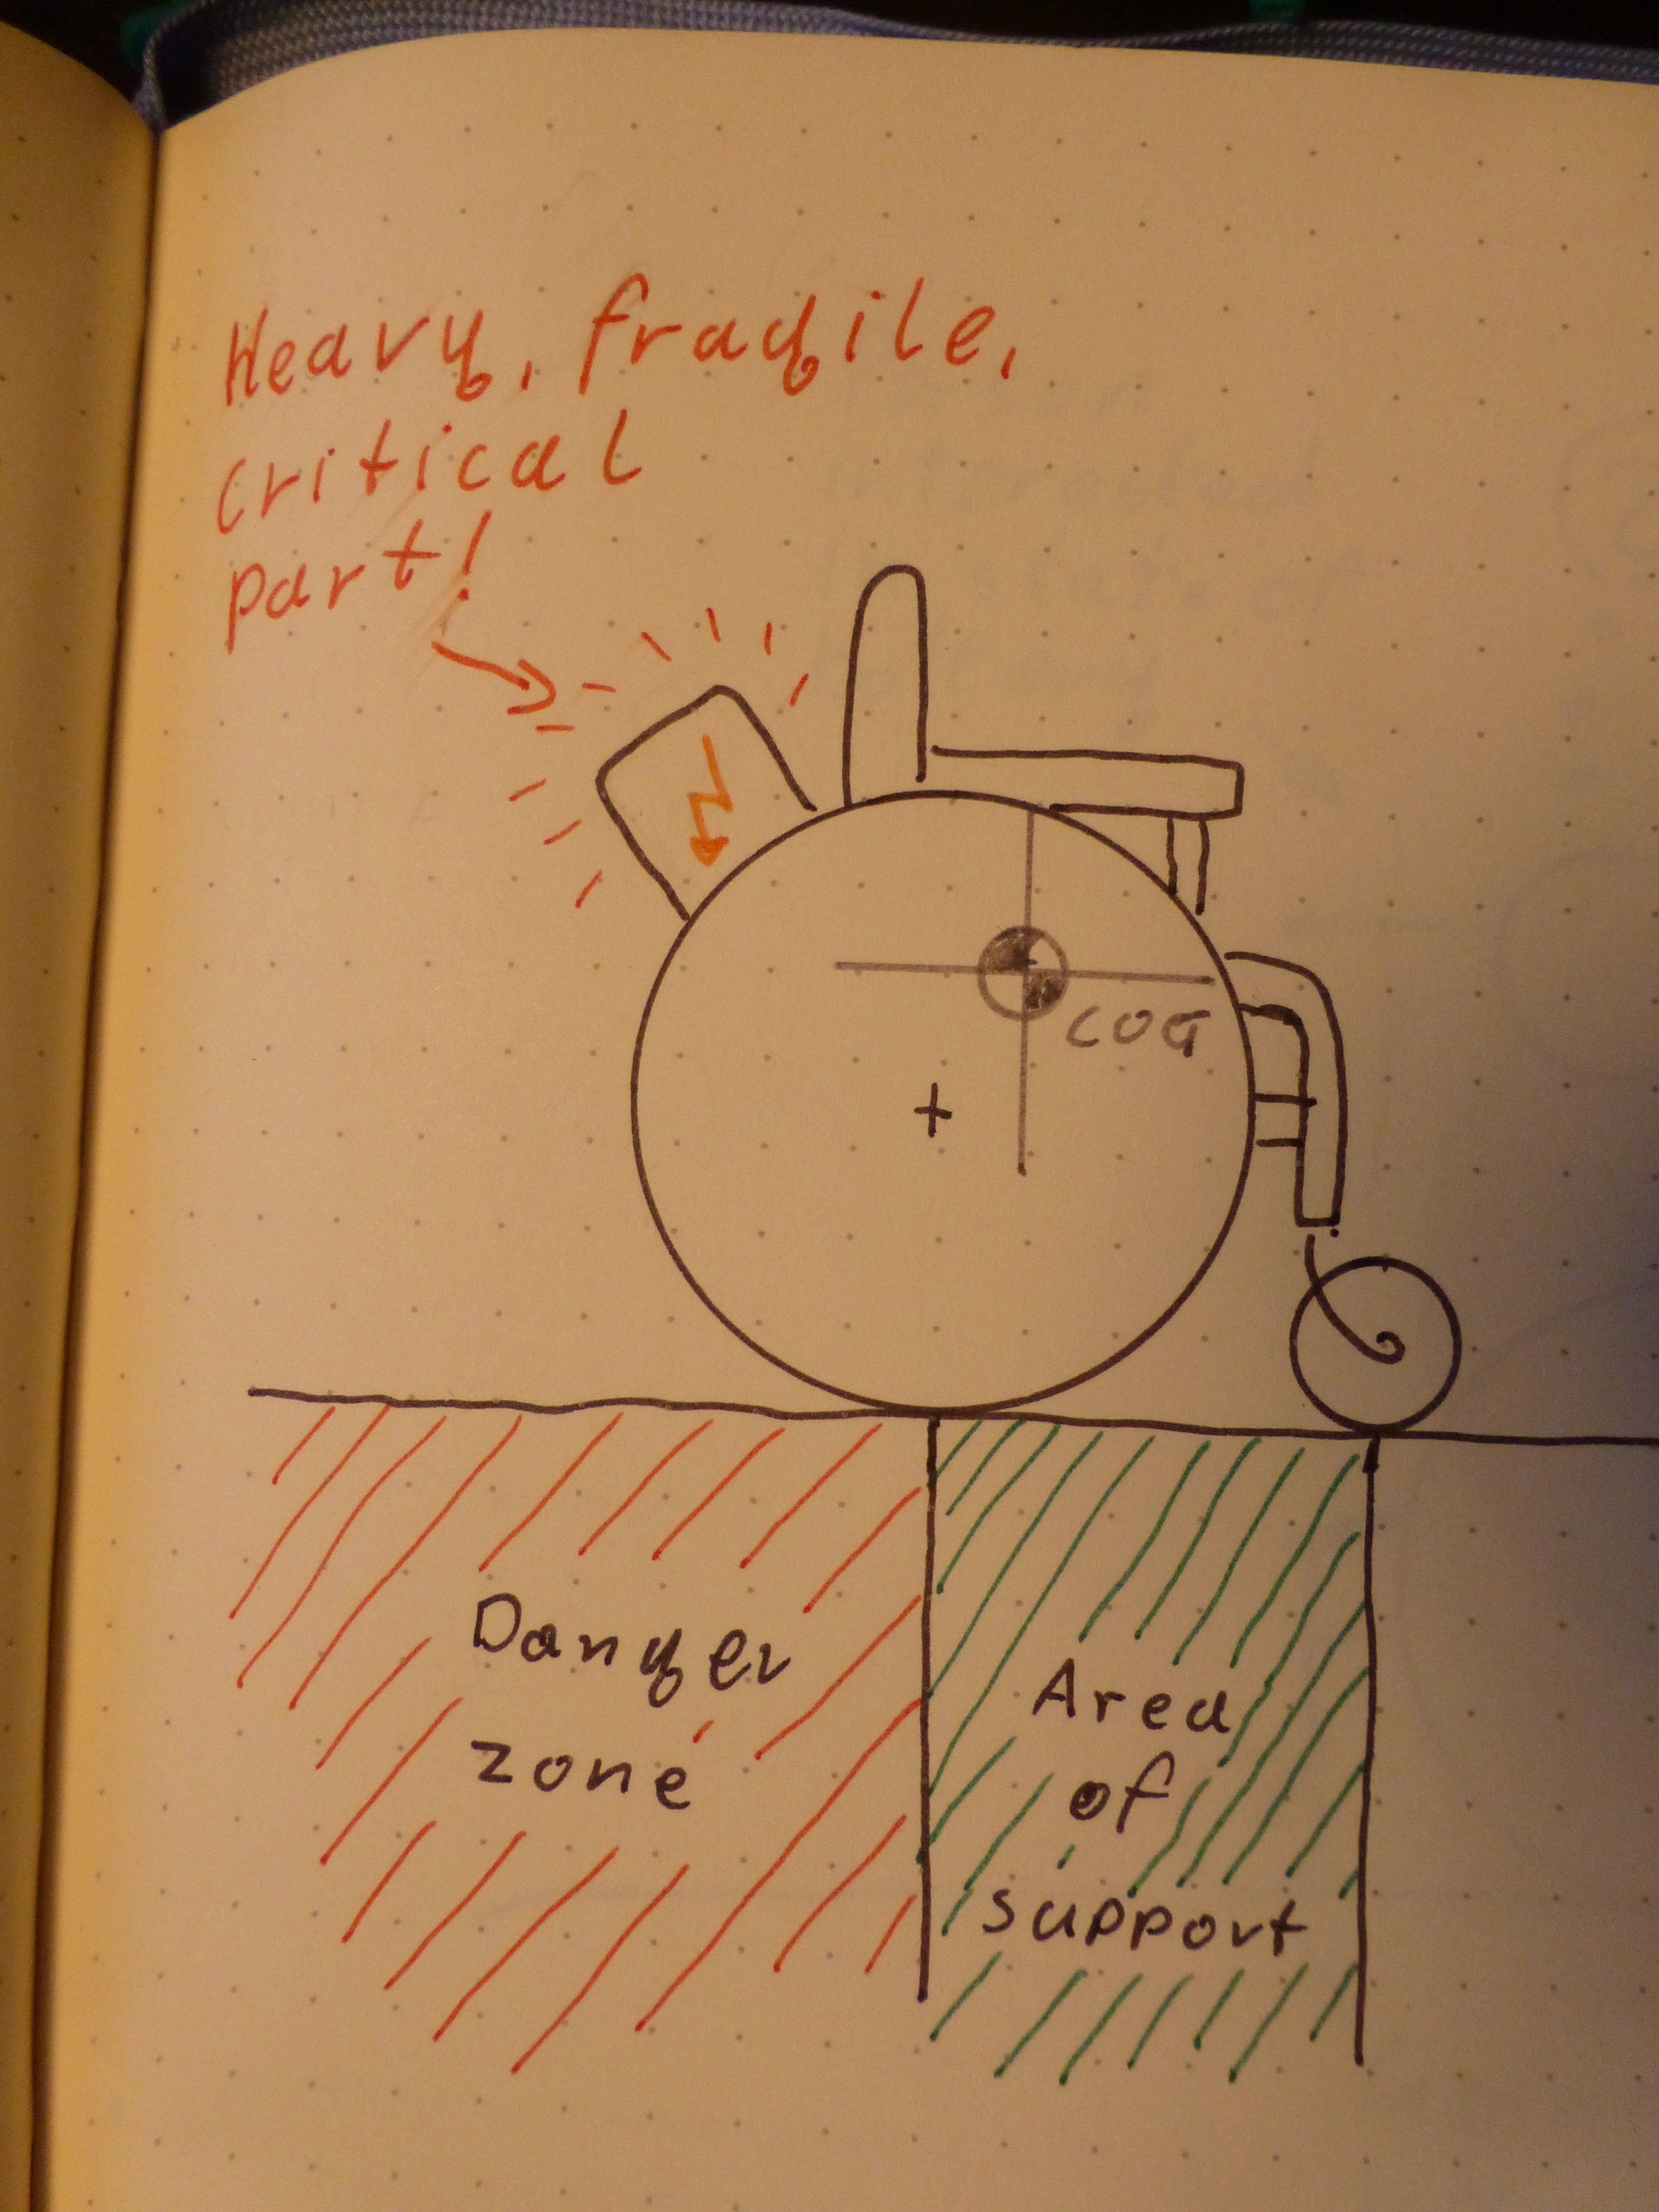 Heavy, fragile,
critical
part!
COG
Danger
zone
Area
of
support